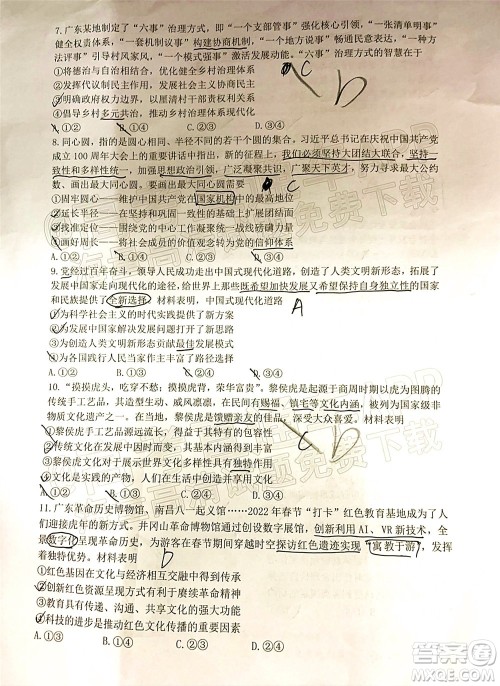 7.广东某地制定了“六事”治理方式，即“一个支部管事”强化核心引领，“一张清单明事”
健全权责体系，“一套机制议事”构建协商机制，“一个地方说事”畅通民意表达，“一种方
法评事”引导村风家风，“一个模式强事”激活发展动能。“六事”治理方式的智慧在于
①将德治与自治相结合，优化健全乡村治理体系
②发挥代议制民主作用，创新乡村治理体系
③明确政府权力边界，以厘清村民自治范围
④塑造乡村多元共治，推动乡村治理体系现代化
A.①② B.①④ C.②③ D.③④
C
b
8.同心圆，是指圆心相同、半径不同的若干个圆的集合。习近平总书记在庆祝中国共产党
成立100周年大会上的重要讲话中强调，我们必须坚持大团结大联合，坚持一
致性和多样性统一，加强思想政治引领，广泛凝聚共识，广聚天下英才，努力寻求最大公
约数、画出最大同心圆。画出最大同心圆需要
C
①固牢圆心——维护中国共产党在国家机构中的最高地位
②延长半径——巩固和发展最广泛的爱国统一战线
③找准定位——充分发挥人民政协专门协商机构作用
④画好周长——将社会的价值观念转变为党的信仰体系
A.①② B.①④ C.②③ D.③④
9.党经过百年奋斗，领导人民成功走出中国式现代化道路，创造了人类文明新形态，拓展了
发展中国家走向现代化的途径，给世界上那些既希望加快发展又希望保持自身独立性的国家
和民族提供了全新选择。材料表明，中国式现代化道路
①为科学社会主义新时代的实践开辟了方向
A
②以人民为中心实现了对资本主义现代化的超越
③为创造人类文明新形态贡献了最佳方案
④为各国践行人民当家作主丰富了路径选择
A.①② B.①④ C.②③ D.③④
10.“摸摸虎头，吃穿不愁；摸摸虎背，荣华富贵”。黎侯虎是起源于商周时期以虎为图腾的
传统手工艺品，形态生动、威风凛凛，在民间有赐福、镇宅等文化内涵，被评为国家级非物
质文化遗产之一。春节期间，很多地方有购买黎侯虎馈赠亲友的传统习俗。材料表明
①黎侯虎手工艺品源远流长，具有独特的包容性
b
②传统文化在发展中因时而变，推陈出新
③黎侯虎文化对于展示世界文化具有独特作用
④黎侯虎文化是维系民族生存和发展的精神纽带
A.①② B.①③ C.②④ D.③④
11.广东革命历史博物馆、南昌八一起义馆……2022年春节“打卡”红色教育基地成为了人
们迎接虎年的新方式。井冈山革命博物馆通过创设数字展馆，创新利用AI、VR新技术，全
景数字化再现革命历史，为游客在春节期间穿越时空探访红色遗迹实现“寓教于游”，发挥
着独特优势。材料表明
b
①红色基因在文化与科技相互交融中迸发活力
②创新红色资源呈现方式有利于赓续革命精神
③教育具有传递、共享文化的强大功能
④科技的进步是推动红色文化传播的重要因素
A.①③ B.①④ C.②③ D.②④
答案圈
MXQE.COM